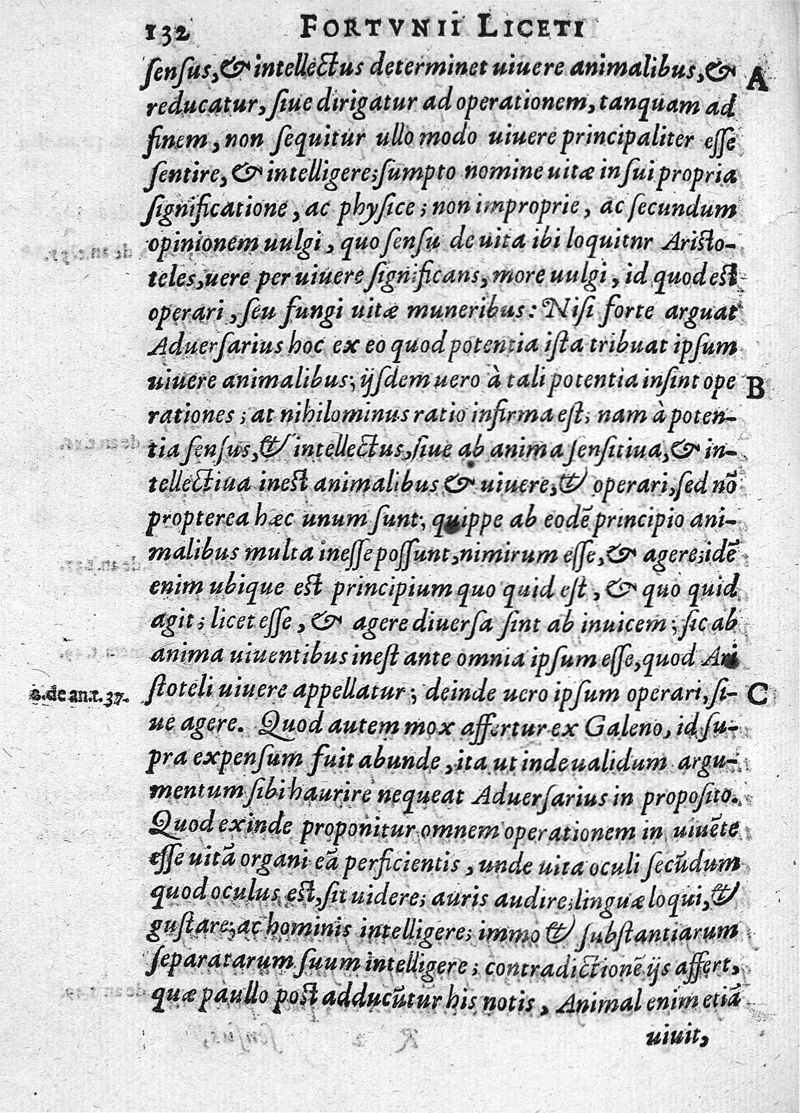 132 FORTVNII LICETI
sensus, & intellectus determinet uiuere animalibus, & A
reducatur, siue dirigatur ad operationem, tanquam ad
finem, non sequitur ullo modo uiuere principaliter esse
sentire, & intelligere; sumpto nomine uitæ in sui propria
significatione, ac physice; non improprie, ac secundum
opinionem uulgi, quo sensu de uita ibi loquitnr Aristo-
teles, uere per uiuere significans, more uulgi, id quod est
operari, seu fungi uitæ muneribus: Nisi forte arguat
Aduersarius hoc ex eo quod potentia ista tribuat ipsum
uiuere animalibus; ijsdem uero à tali potentia insint ope B
rationes; at nihilominus ratio infirma est; nam à poten-
tia sensus, & intellectus, siue ab anima sensitiua, & in-
tellectiua inest animalibus & uiuere, & operari, sed nõ
propterea hæc unum sunt; quippe ab eodē principio ani-
malibus multa inesse possunt, nimirum esse, & agere; idē
enim ubique est principium quo quid est, & quo quid
agit; licet esse, & agere diuersa sint ab inuicem; sic ab
anima uiuentibus inest ante omnia ipsum esse, quod Ari
2. de an. t. 37. stoteli uiuere appellatur; deinde uero ipsum operari, si- C
ue agere. Quod autem mox affertur ex Galeno, id su-
pra expensum fuit abunde, ita ut inde ualidum argu-
mentum sibi haurire nequeat Aduersarius in proposito.
Quod exinde proponitur omnem operationem in uiuēte
esse uitã organi eã perficientis, unde uita oculi secũdum
quod oculus est, sit uidere; auris audire; linguæ loqui, &
gustare; ac hominis intelligere; immo & substantiarum
separatarum suum intelligere; contradictionē ijs affert,
quæ paullo post adducũtur his notis, Animal enim etiã
uiuit,